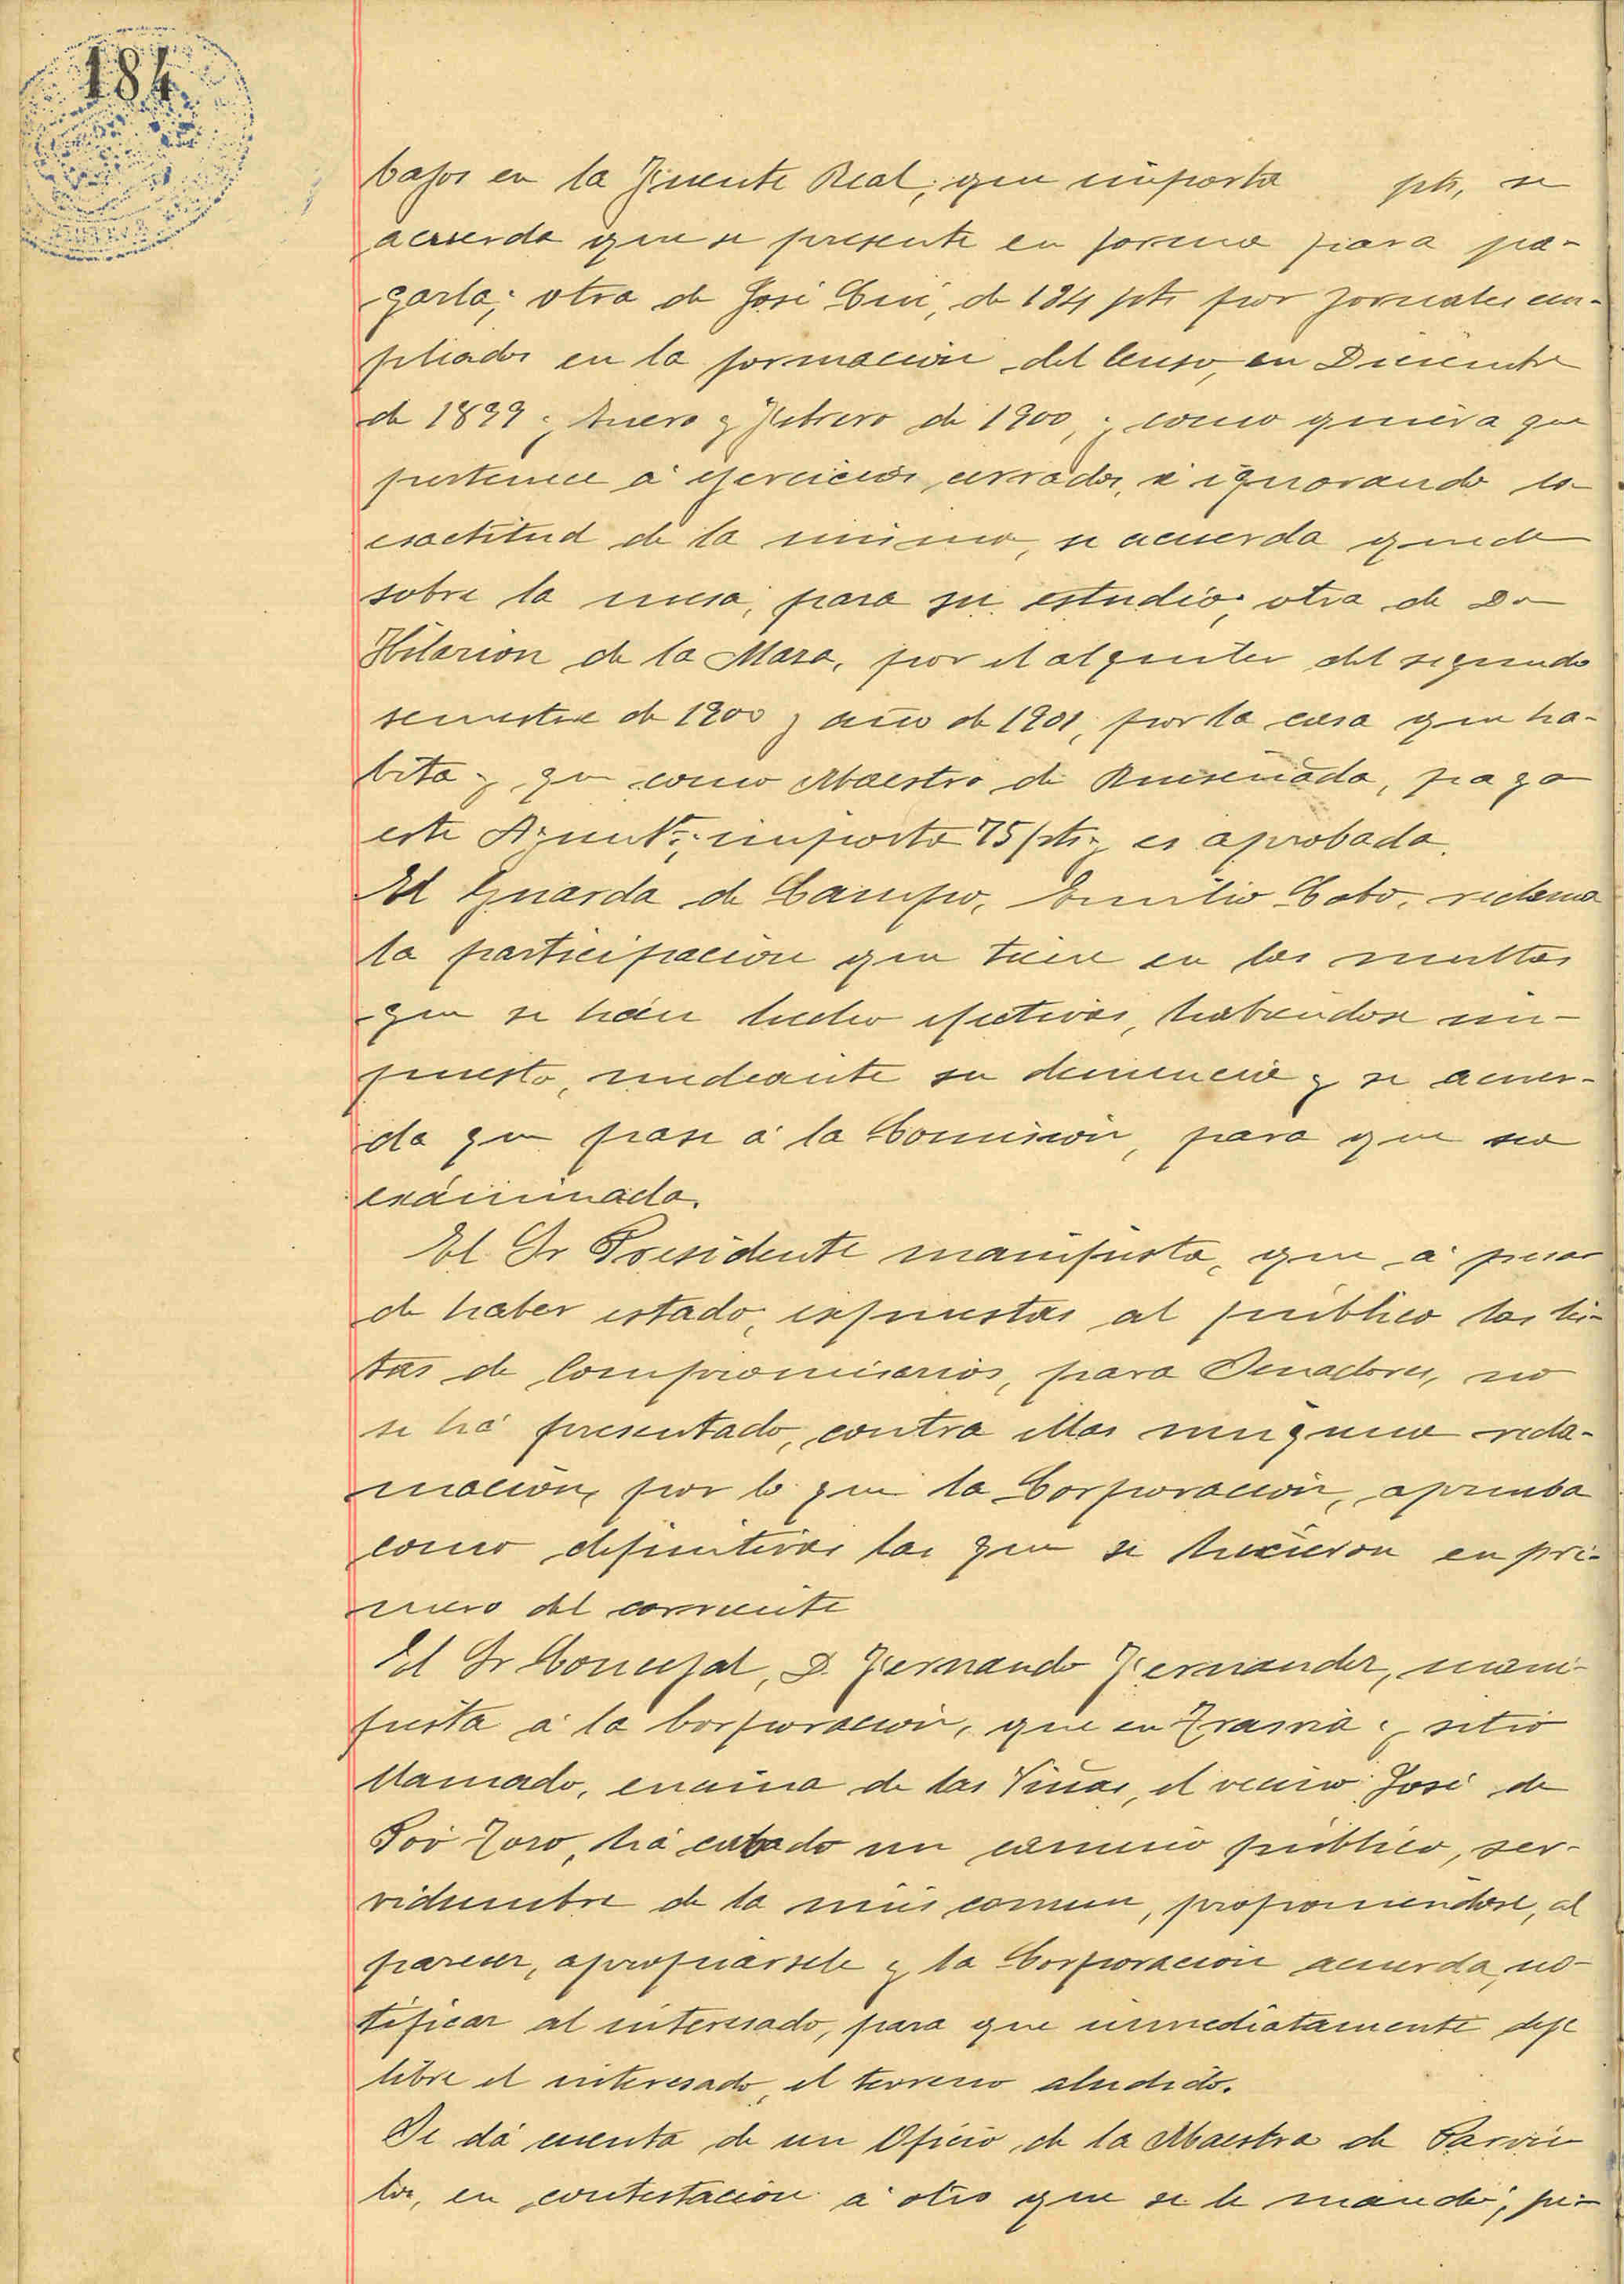 184
bajos en la Fuente Real, que importa pts, se
acuerda que se presente en forma para pa-
garla; otra de José Cué, de 184 pts por jornales em-
pleados en la formacion del Censo, en Diciembre
de 1899 y Enero y Febrero de 1900, y como quiera que
pertenece á ejercicios cerrados, é ignorando la
esactitud de la misma, se acuerda quede
sobre la mesa, para su estudio; otra de Dn
Hilarion de la Maza, por el alquiler del segundo
semestre de 1900 y año de 1901, por la casa que ha-
bita y que como Maestro de paga
este Ayunto; importa 75 pts y es aprobada.
El Guarda de Campo, Emilio Cobo, reclama
la participacion que tiene en las multas
que se hán hecho efectivas, habiendose im-
puesto, mediante su denuncia y se acuer-
da que pase á la Comision, para que sea
exáminada.
El Sr Presidente manifiesta, que á pesar
de haber estado, expuestas al público las lis-
tas de Compromisarios, para Senadores, no
se há presentado, contra ellas ninguna recla-
macion, por lo que la Corporacion, aprueba
como definitivas las que se hicieron en pri-
mero del corriente
El Sr Concejal, D. Fernando Fernandez, mani-
fiesta á la Corporacion, que en y sitio
llamado, encima de las Viñas, el vecino José de
Poó Toro, há cerrado un camino público, ser-
vidumbre de la mies comun, proponiendose, al
parecer, apropiarsele y la Corporacion acuerda, no-
tificar al interesado, para que inmediatamente deje
libre el interesado, el terreno aludido.
Se dá cuenta de un Oficio de la Maestra de Parvu-
los, en contestacion á otro que se le mandó, pi-